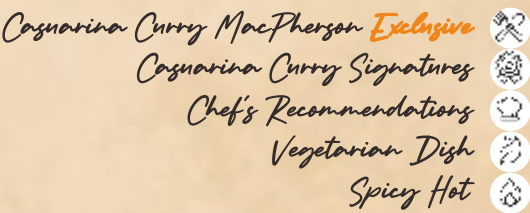 Casuarina Curry MacPherson Exclusive
Casuarina Curry Signatures
Chef's Recommendations
Vegetarian Dish
Spicy Hot